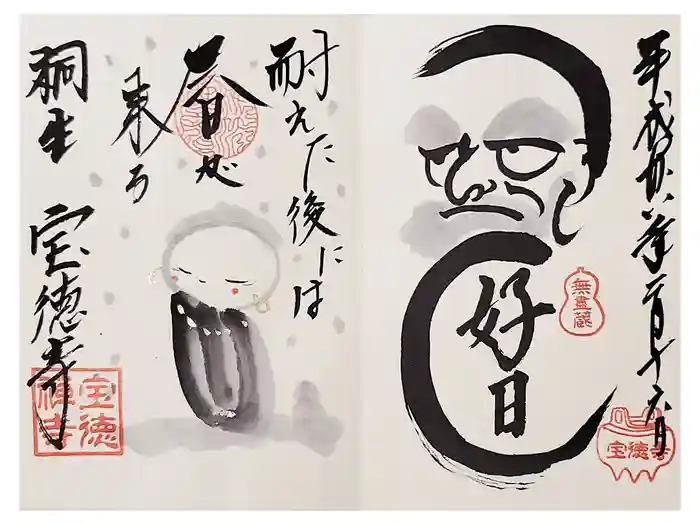 平成廿八年二月十六日
無盡蔵
宝徳寺
好日
耐えた後には
春が
来る
桐生 宝徳寺
宝徳
禅寺